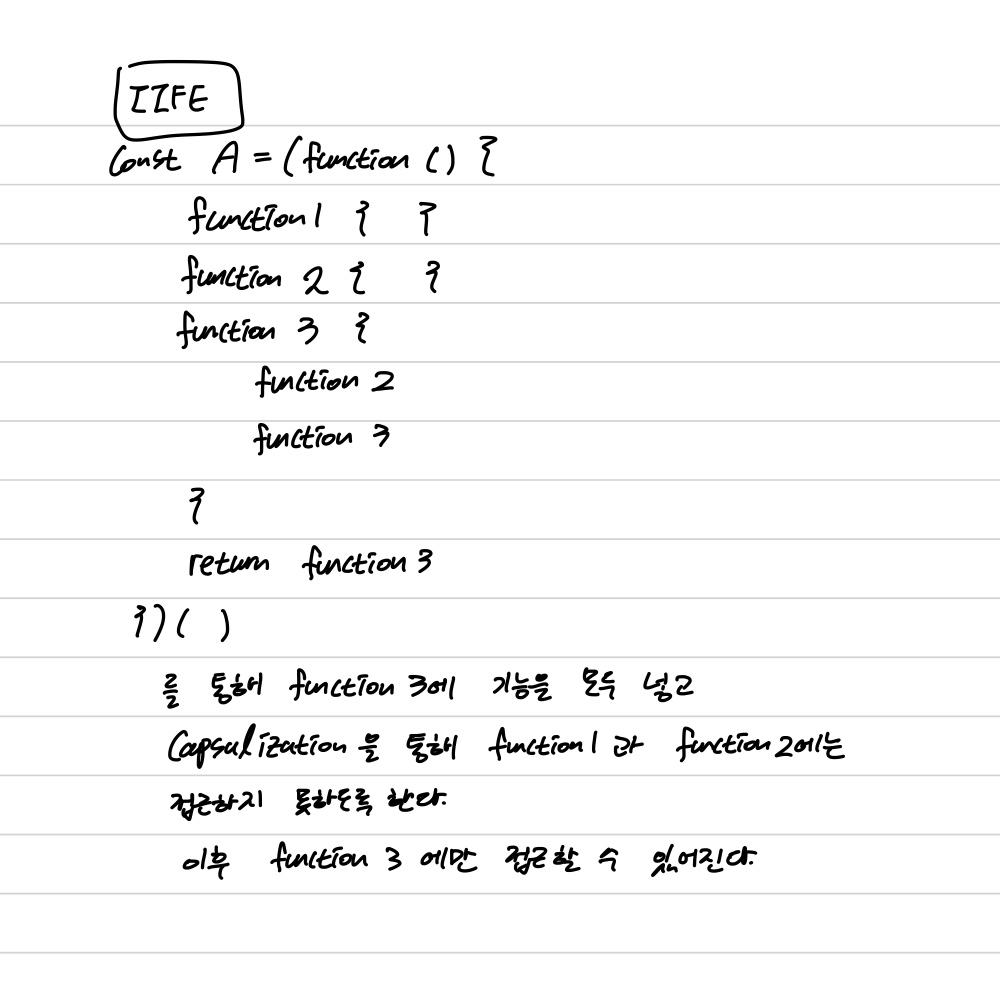 IIFE
Const A = (function () {
function1 { }
function 2 { }
function 3 {
function 2
function 3
}
return function 3
})( )
를 통해 function 3에 기능을 모두 넣고
Capsulization 을 통해 function1 과 function 2에는
접근하지 못하도록 한다.
이후 function 3 에만 접근할 수 있어진다.